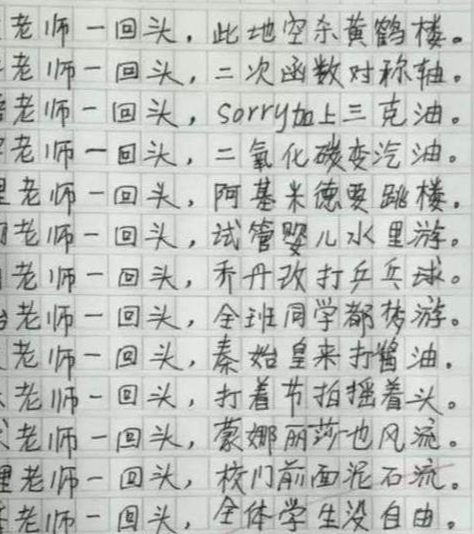 老师一回头，此地空杀黄鹤楼。
老师一回头，二次函数对称轴。
老师一回头，sorry加上三克油。
老师一回头，二氧化碳变汽油。
老师一回头，阿基米德要跳楼。
老师一回头，试管婴儿水里游。
老师一回头，乔丹改打乒乓球。
老师一回头，全班同学都梦游。
老师一回头，秦始皇来打酱油。
老师一回头，打着节拍摇着头。
老师一回头，蒙娜丽莎也风流。
理老师一回头，校门前面泥石流。
老师一回头，全体学生没自由。